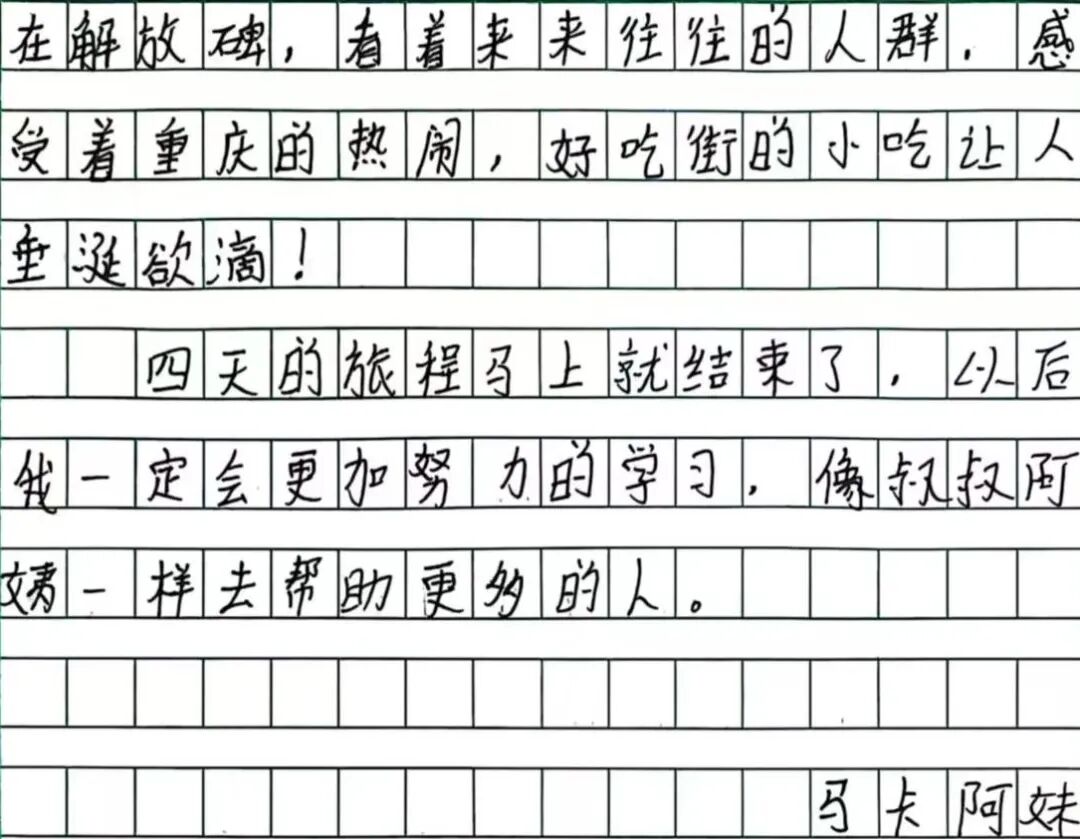 在解放碑，看着来来往往的人群，感
受着重庆的热闹，好吃街的小吃让人
垂涎欲滴！
四天的旅程马上就结束了，以后
我一定会更加努力的学习，像叔叔阿
姨一样去帮助更多的人。
马卡阿妹